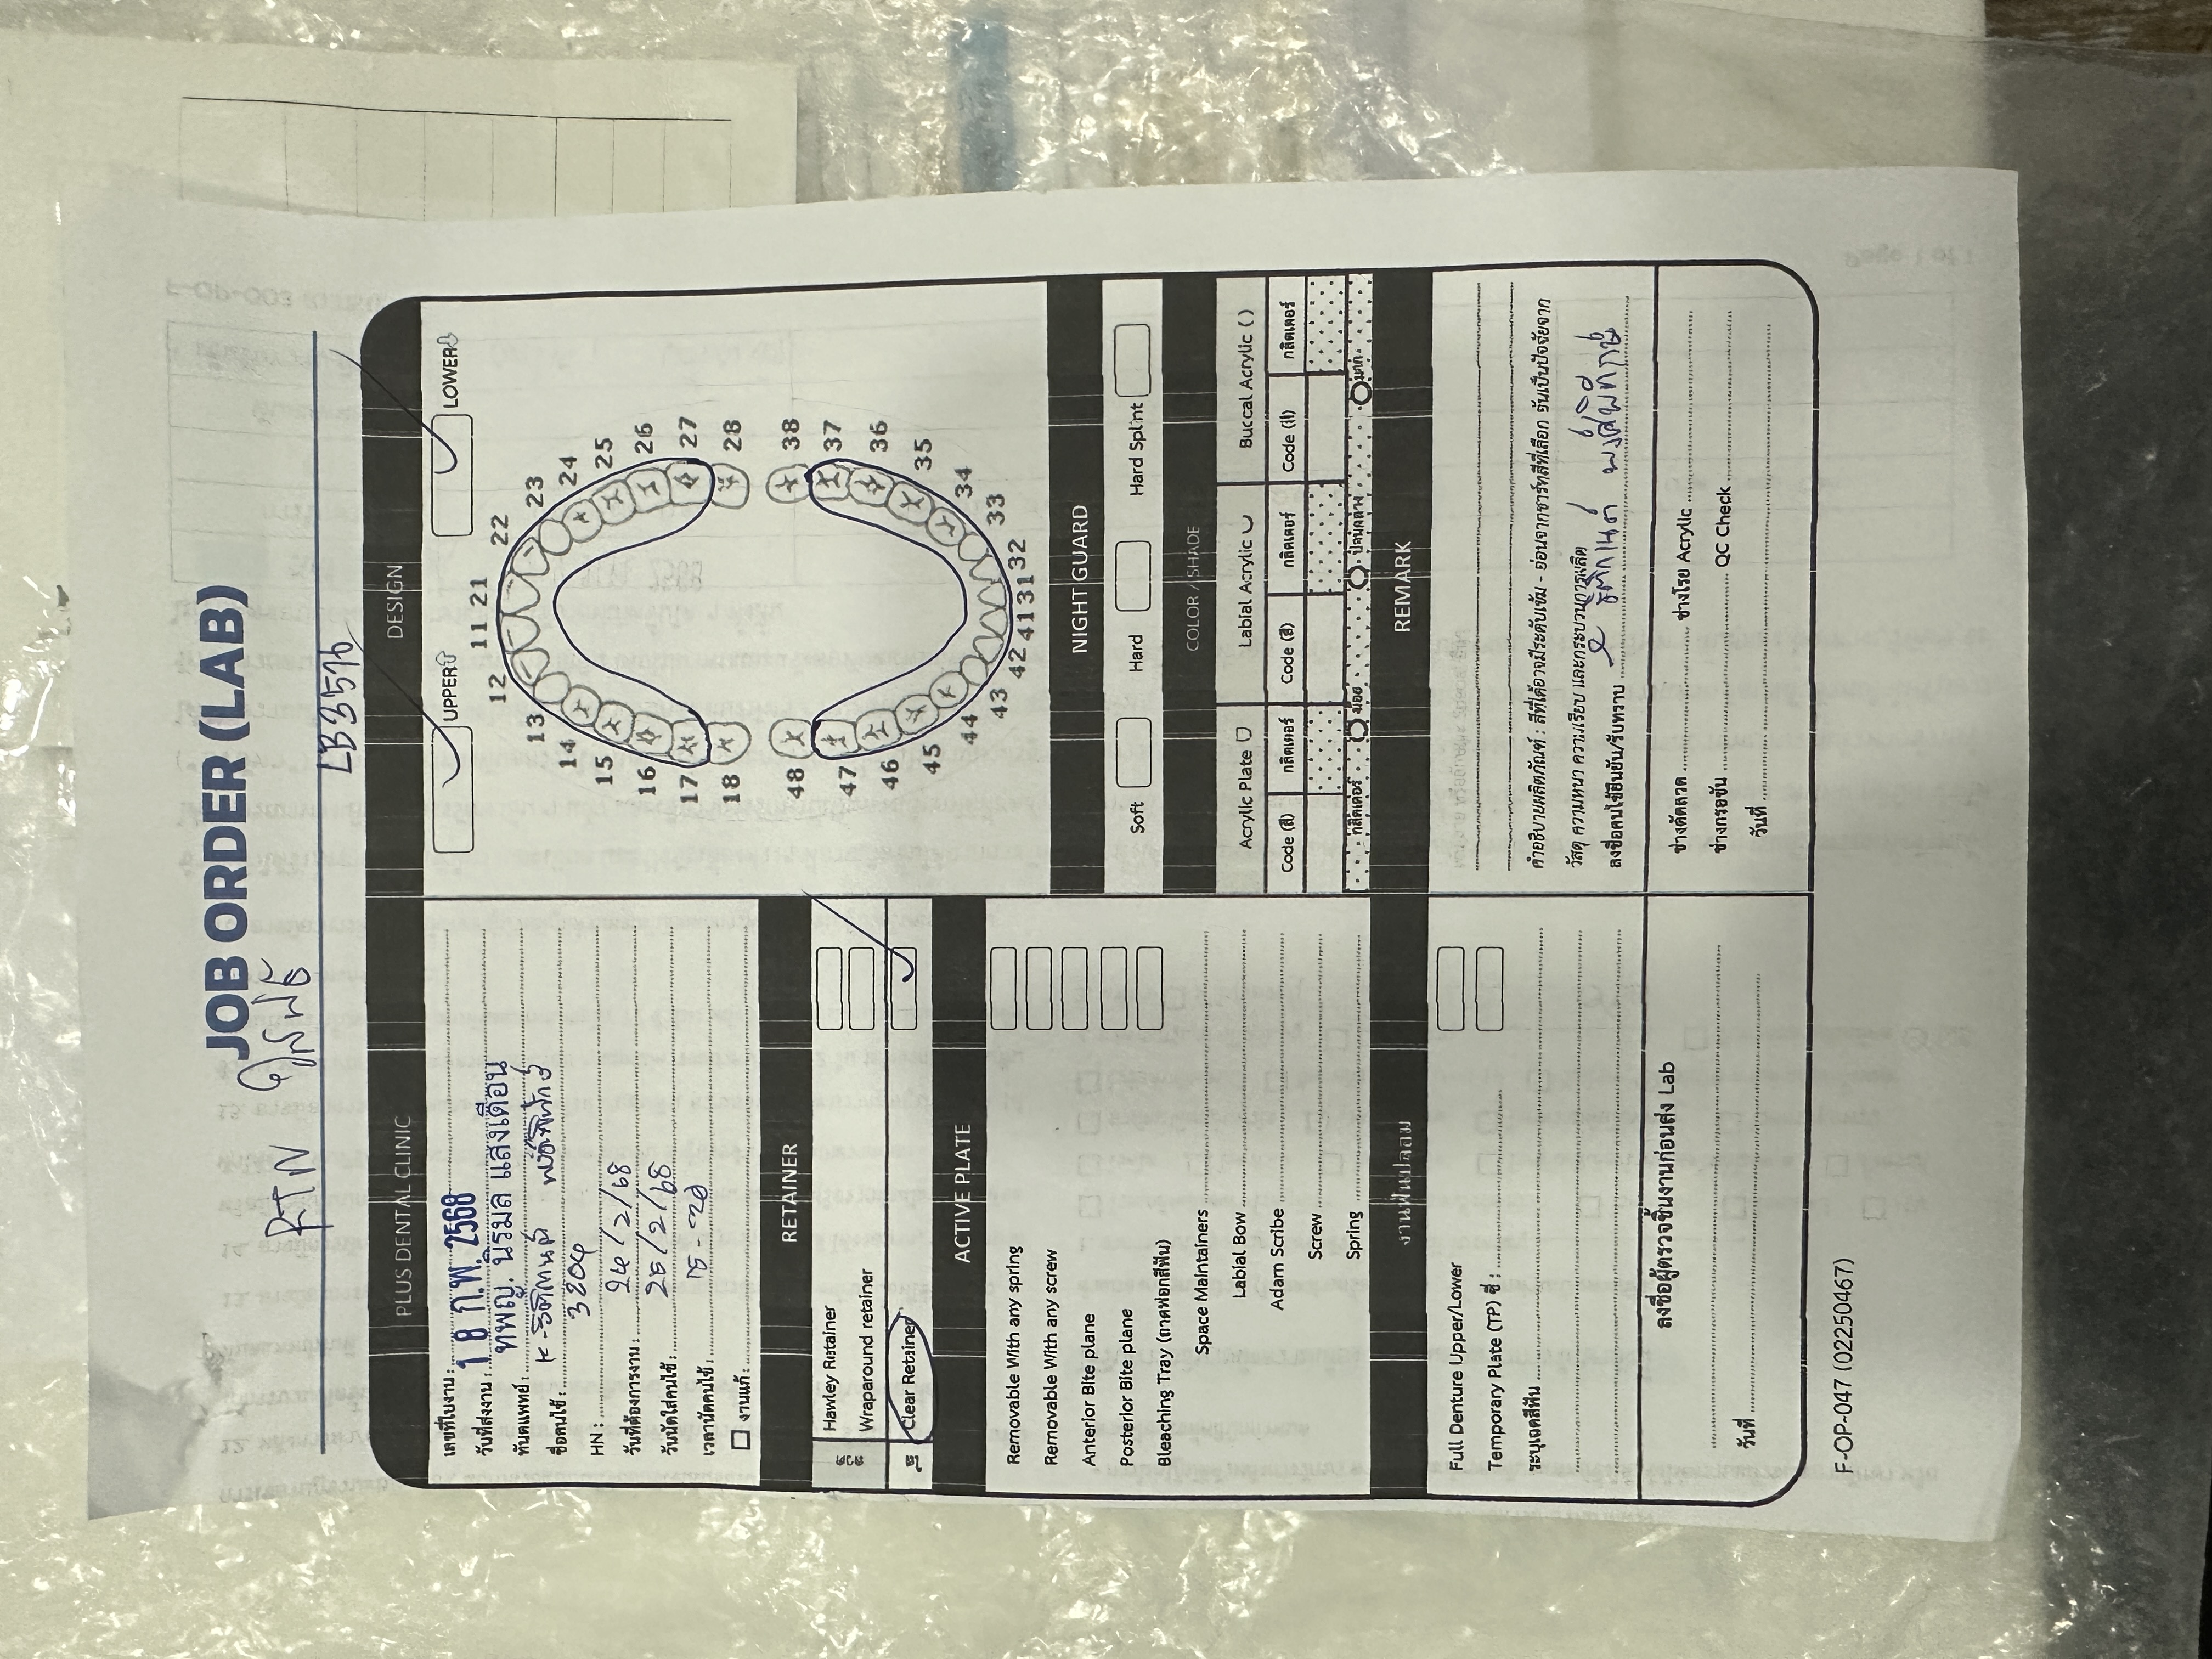 JOB ORDER (LAB)
RTN ใสฟรี
LB3576
PLUS DENTAL CLINIC
เลขที่ใบงาน :
วันที่ส่งงาน : 18 ก.พ. 2568
ทันตแพทย์ : ทพญ. นิรมล แสงเดือน
ชื่อคนไข้ : K-ธิติกานต์ พงศ์พิทักษ์
HN : 3204
วันที่ต้องการงาน : 24/2/68
วันนัดใส่คนไข้ : 25/2/68
เวลานัดคนไข้ :
งานแก้ :
RETAINER
ลวด
Hawley Retainer
Wraparound retainer
ใส
Clear Retainer
ACTIVE PLATE
Removable With any spring
Removable With any screw
Anterior Bite plane
Posterior Bite plane
Bleaching Tray (ถาดฟอกสีฟัน)
Space Maintainers
Labial Bow
Adam Scribe
Screw
Spring
งานฟันปลอม
Full Denture Upper/Lower
Temporary Plate (TP) ซี่ :
ระบุเฉดสีฟัน
ลงชื่อผู้ตรวจชิ้นงานก่อนส่ง Lab
วันที่
DESIGN
UPPER LOWER
11 21
12 22
13 23
14 24
15 25
16 26
17 27
18 28
48 38
47 37
46 36
45 35
44 34
43 33
42 41 31 32
NIGHT GUARD
Soft Hard Hard Splint
COLOR / SHADE
Acrylic Plate Labial Acrylic Buccal Acrylic ( )
Code (สี) กลิตเตอร์ Code (สี) กลิตเตอร์ Code (สี) กลิตเตอร์
กลิตเตอร์ น้อย ปานกลาง มาก
REMARK
คำอธิบายผลิตภัณฑ์ : สีที่ได้อาจมีระดับเข้ม - อ่อนจากชาร์ทสีที่เลือก อันเป็นปัจจัยจาก
วัสดุ ความหนา ความเรียบ และกระบวนการผลิต
ลงชื่อคนไข้ยืนยัน/รับทราบ ธิติกานต์ พงศ์พิทักษ์
ช่างดัดลวด ช่างโรย Acrylic
ช่างกรอขัน QC Check
วันที่
F-OP-047 (02250467)